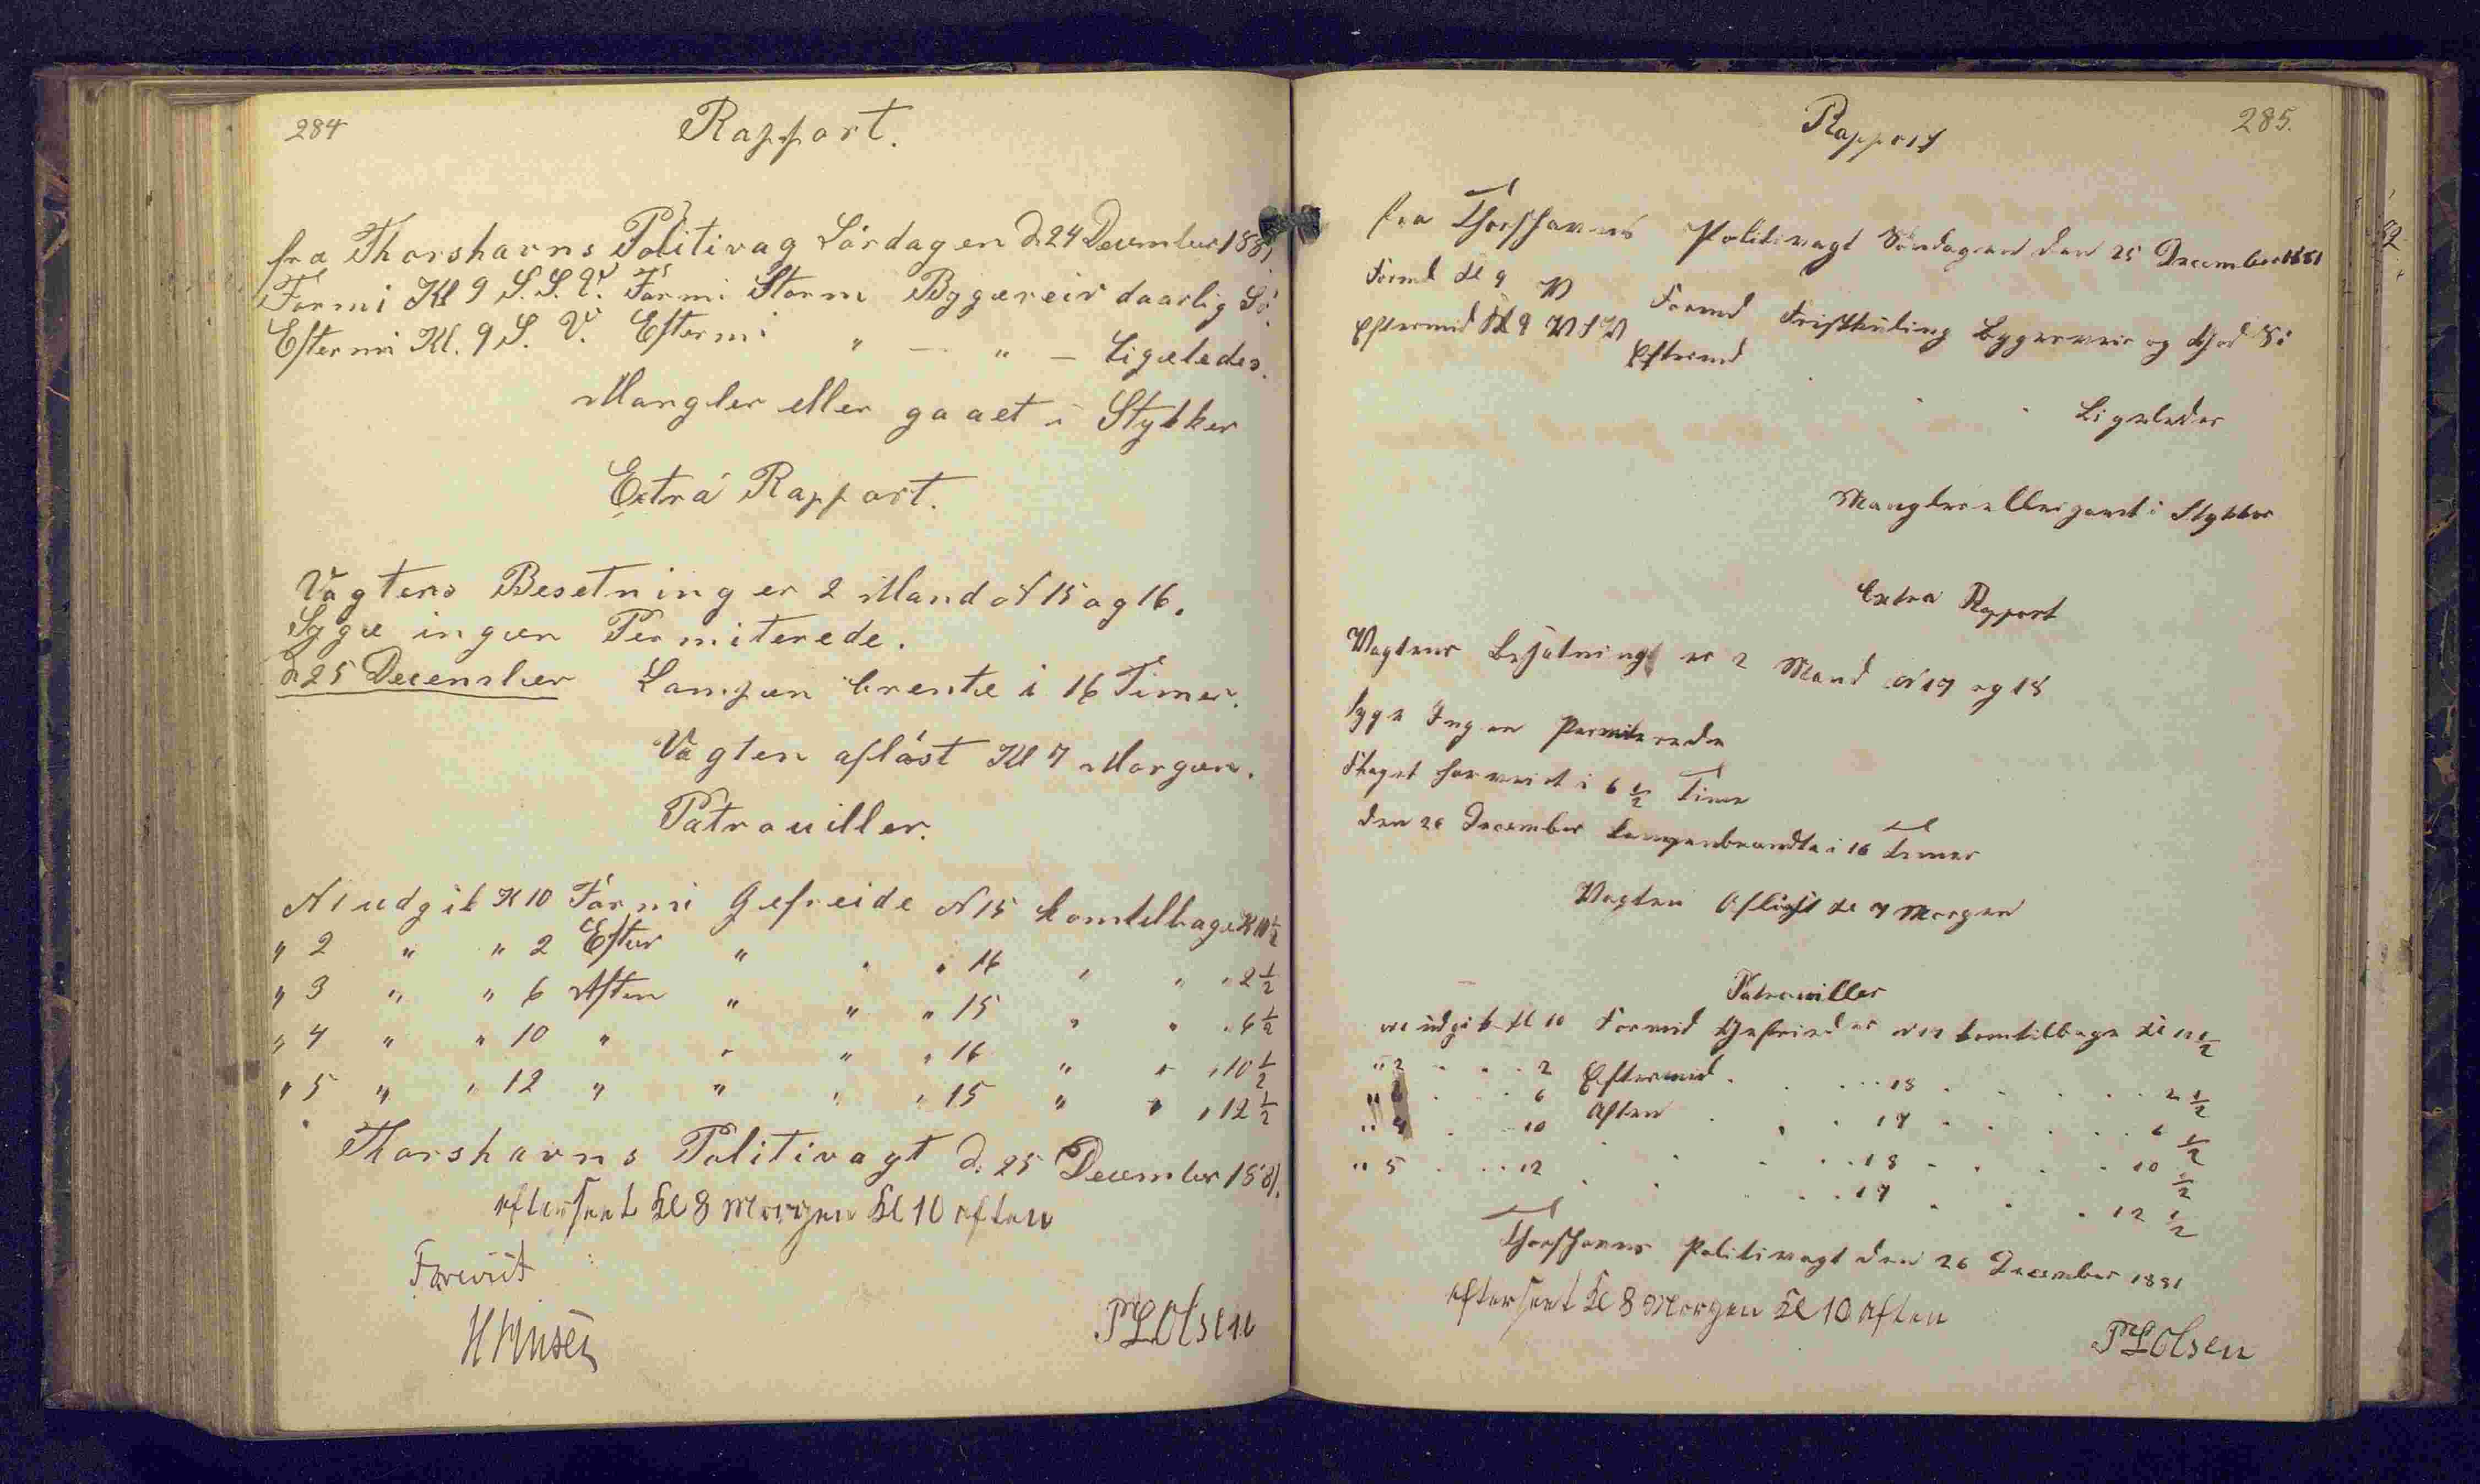 284
Rapport.
fra Thorshavns Politivag Lördagen d. 24 December 1881
Formi Kl 9 S.S.V. Formi Storm Bygæveir daarlig Sö.
Eftermi Kl. 9 S. V. Eftermi " — " — Ligæledes.
Mangler eller gaaet i Stykker
Extra Rapport.
Vagtens Besetning er 2 Mand N 15 og 16.
Syge ingen Permiterede.
d 25 December Lampen brente i 16 Timer.
Vagten aflöst Kl 7 Morgen.
Patrouiller.
N 1 udgik Kl 10 Formi Gefreide N 15 kom tilbage Kl 10 1/2
" 2 " " 2 Efter " " " 16 " " " 2 1/2
" 3 " " 6 Aften " " " 15 " " " 6 1/2
" 4 " " 10 " " " " 16 " " " 10 1/2
" 5 " " 12 " " " " 15 " " " 12 1/2
Thorshavns Politivagt d. 25 December 1881.
efterseet Kl 8 Morgen Kl 10 aften
Forevist
P L Olsen
285.
Rapport
fra Thorshavns Politivagt Söndagen den 25 December 1881
Formd Kl 9 V Formd Friskkuling Bygeveir og God Sö
Eftermid Kl 9 V S V Eftermd " " " Ligeledes
Mangler eller gaaet i Stykker
Extra Rapport
Vagtens Besatning er 2 Mand N 17 og 18
syge Ingen Permiterede
Flaget har veiet i 6 1/2 Time
den 26 December Lampen brandte i 16 Timer
Vagten Aflöst Kl 7 Morgen
Patrouiller
N 1 udgik Kl 10 Formid Gefreider N 17 kom tilbage Kl 10 1/2
" 2 " " 2 Eftermid " " 18 " " " 2 1/2
" 3 " " 6 Aften " " 17 " " " 6 1/2
" 4 " " 10 " " " 18 " " " 10 1/2
" 5 " " 12 " " " 17 " " " 12 1/2
Thorshavns Politivagt den 26 December 1881
efterseet Kl 8 Morgen Kl 10 Aften
P L Olsen